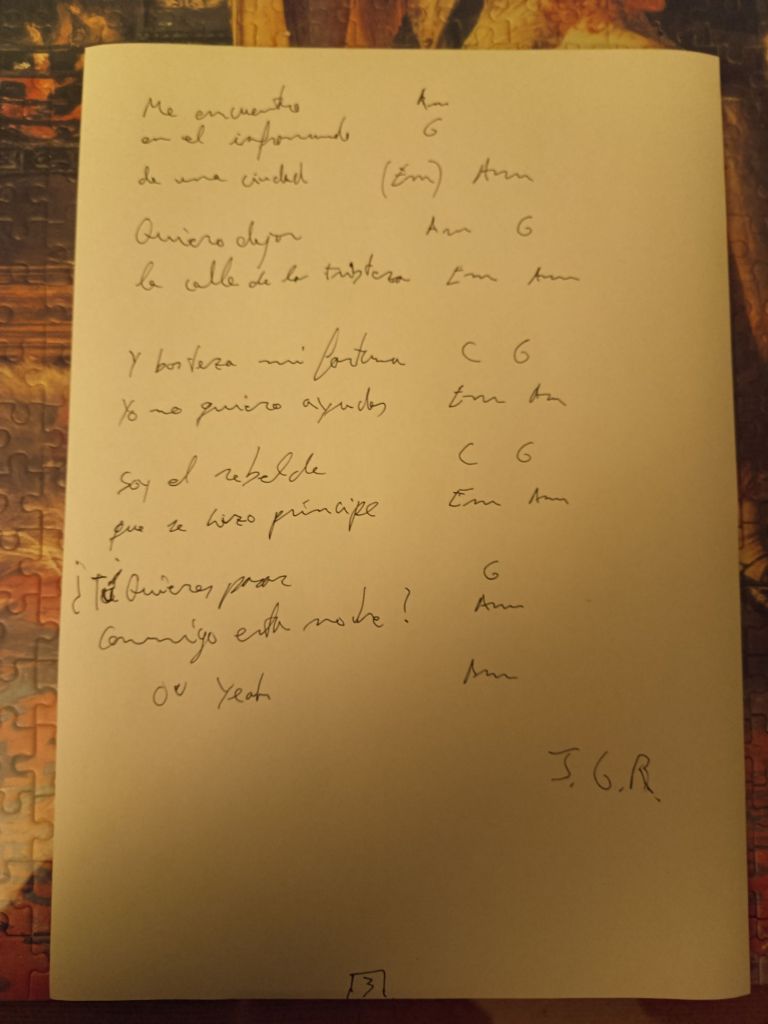 Me encuentro Am
en el inframundo G
de una ciudad (Em) Am
Quiero dejar Am G
la calle de la tristeza Em Am
Y bosteza mi fortuna C G
Yo no quiero ayudas Em Am
Soy el rebelde C G
que se hizo príncipe Em Am
¿Tú Quieres pasar G
conmigo esta noche? Am
Ou Yeah Am
J.G.R.
3